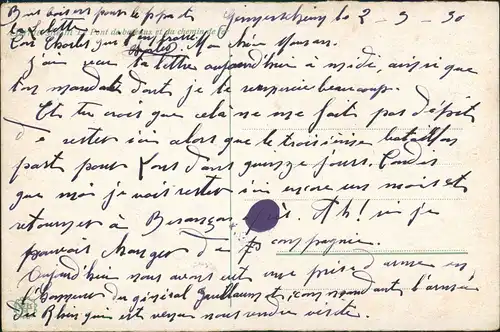 Germersheim le 2-3-30
la lettre
Pont de bateaux et du chemin de fer
Ma chère Maman.
J'ai reçu ta lettre aujourd'hui à midi, ainsi que
ton mandat dont je te remercie beaucoup.
Et tu crois que cela ne me fait pas dépit
de rester ici alors que le troisième bataillon
part pour dans quinze jours. Tandis
que moi je vais rester ici encore un mois et
retourner à Besançon après. Ah! si je
pouvais changer de compagnie.
Aujourd'hui nous avons eut une prise d'arme en
l'honneur du général Guillaumat, commandant l'armée
du Rhin qui est venu nous rendre visite.